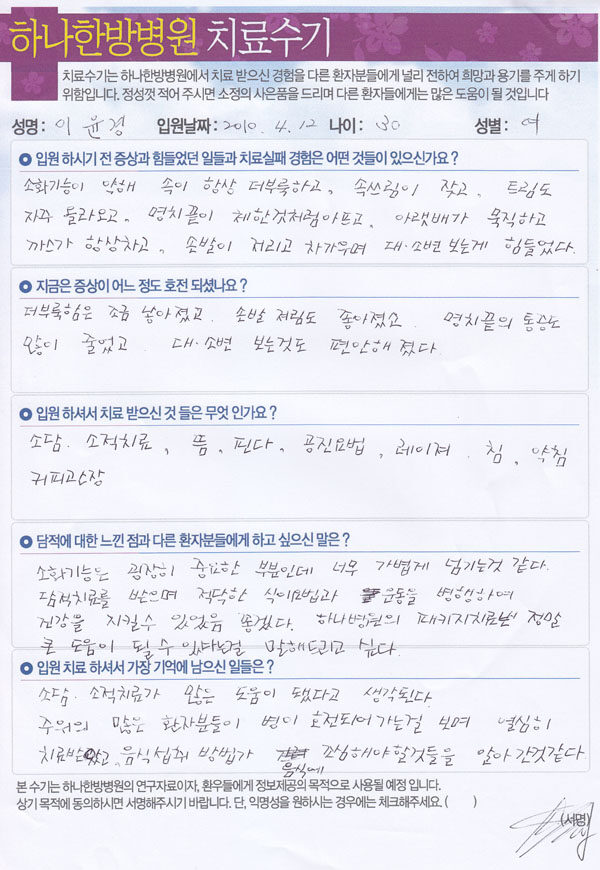 하나한방병원 치료수기
치료수기는 하나한방병원에서 치료 받으신 경험을 다른 환자분들에게 널리 전하여 희망과 용기를 주게 하기
위함입니다. 정성껏 적어 주시면 소정의 사은품을 드리며 다른 환자들에게는 많은 도움이 될 것입니다
성명 : 이윤경 입원날짜 : 2010. 4. 12 나이 : 30 성별 : 여
입원 하시기 전 증상과 힘들었던 일들과 치료실패 경험은 어떤 것들이 있으신가요 ?
소화기능이 약해 속이 항상 더부룩하고, 속쓰림이 잦고, 트림도
자주 올라오고, 명치끝이 체한것처럼아프고, 아랫배가 묵직하고
까스가 항상차고, 손발이 저리고 차가우며 대·소변 보는게 힘들었다.
지금은 증상이 어느 정도 호전 되셨나요 ?
더부룩함은 조금 낳아졌고. 손발 저림도 좋아졌고. 명치끝의 통증도
많이 줄었고. 대·소변 보는것도 편안해졌다.
입원 하셔서 치료 받으신 것 들은 무엇 인가요 ?
소담. 소적치료, 뜸, 핀다, 공진요법, 레이져. 침, 약침
커피관장
담적에 대한 느낀 점과 다른 환자분들에게 하고 싶으신 말은 ?
소화기능은 굉장히 중요한 부분인데 너무 가볍게 넘기는것 같다.
담적치료를 받으며 적당한 식이요법과 운동을 병행하여
건강을 지킬수 있었음 좋겠다. 하나병원의 패키지치료는 정말
큰 도움이 될 수 있다는걸 말해드리고 싶다.
입원 치료 하셔서 가장 기억에 남으신 일들은 ?
소담. 소적치료가 많은 도움이 됐다고 생각된다
주위의 많은 환자분들이 병이 호전되어가는걸 보며 열심히
치료받았고, 음식섭취 방법과 음식에 조심해야할것들을 알아간것같다
본 수기는 하나한방병원의 연구자료이자, 환우들에게 정보제공의 목적으로 사용될 예정 입니다.
상기 목적에 동의하시면 서명해주시기 바랍니다. 단, 익명성을 원하시는 경우에는 체크해주세요. ( )
(서명)